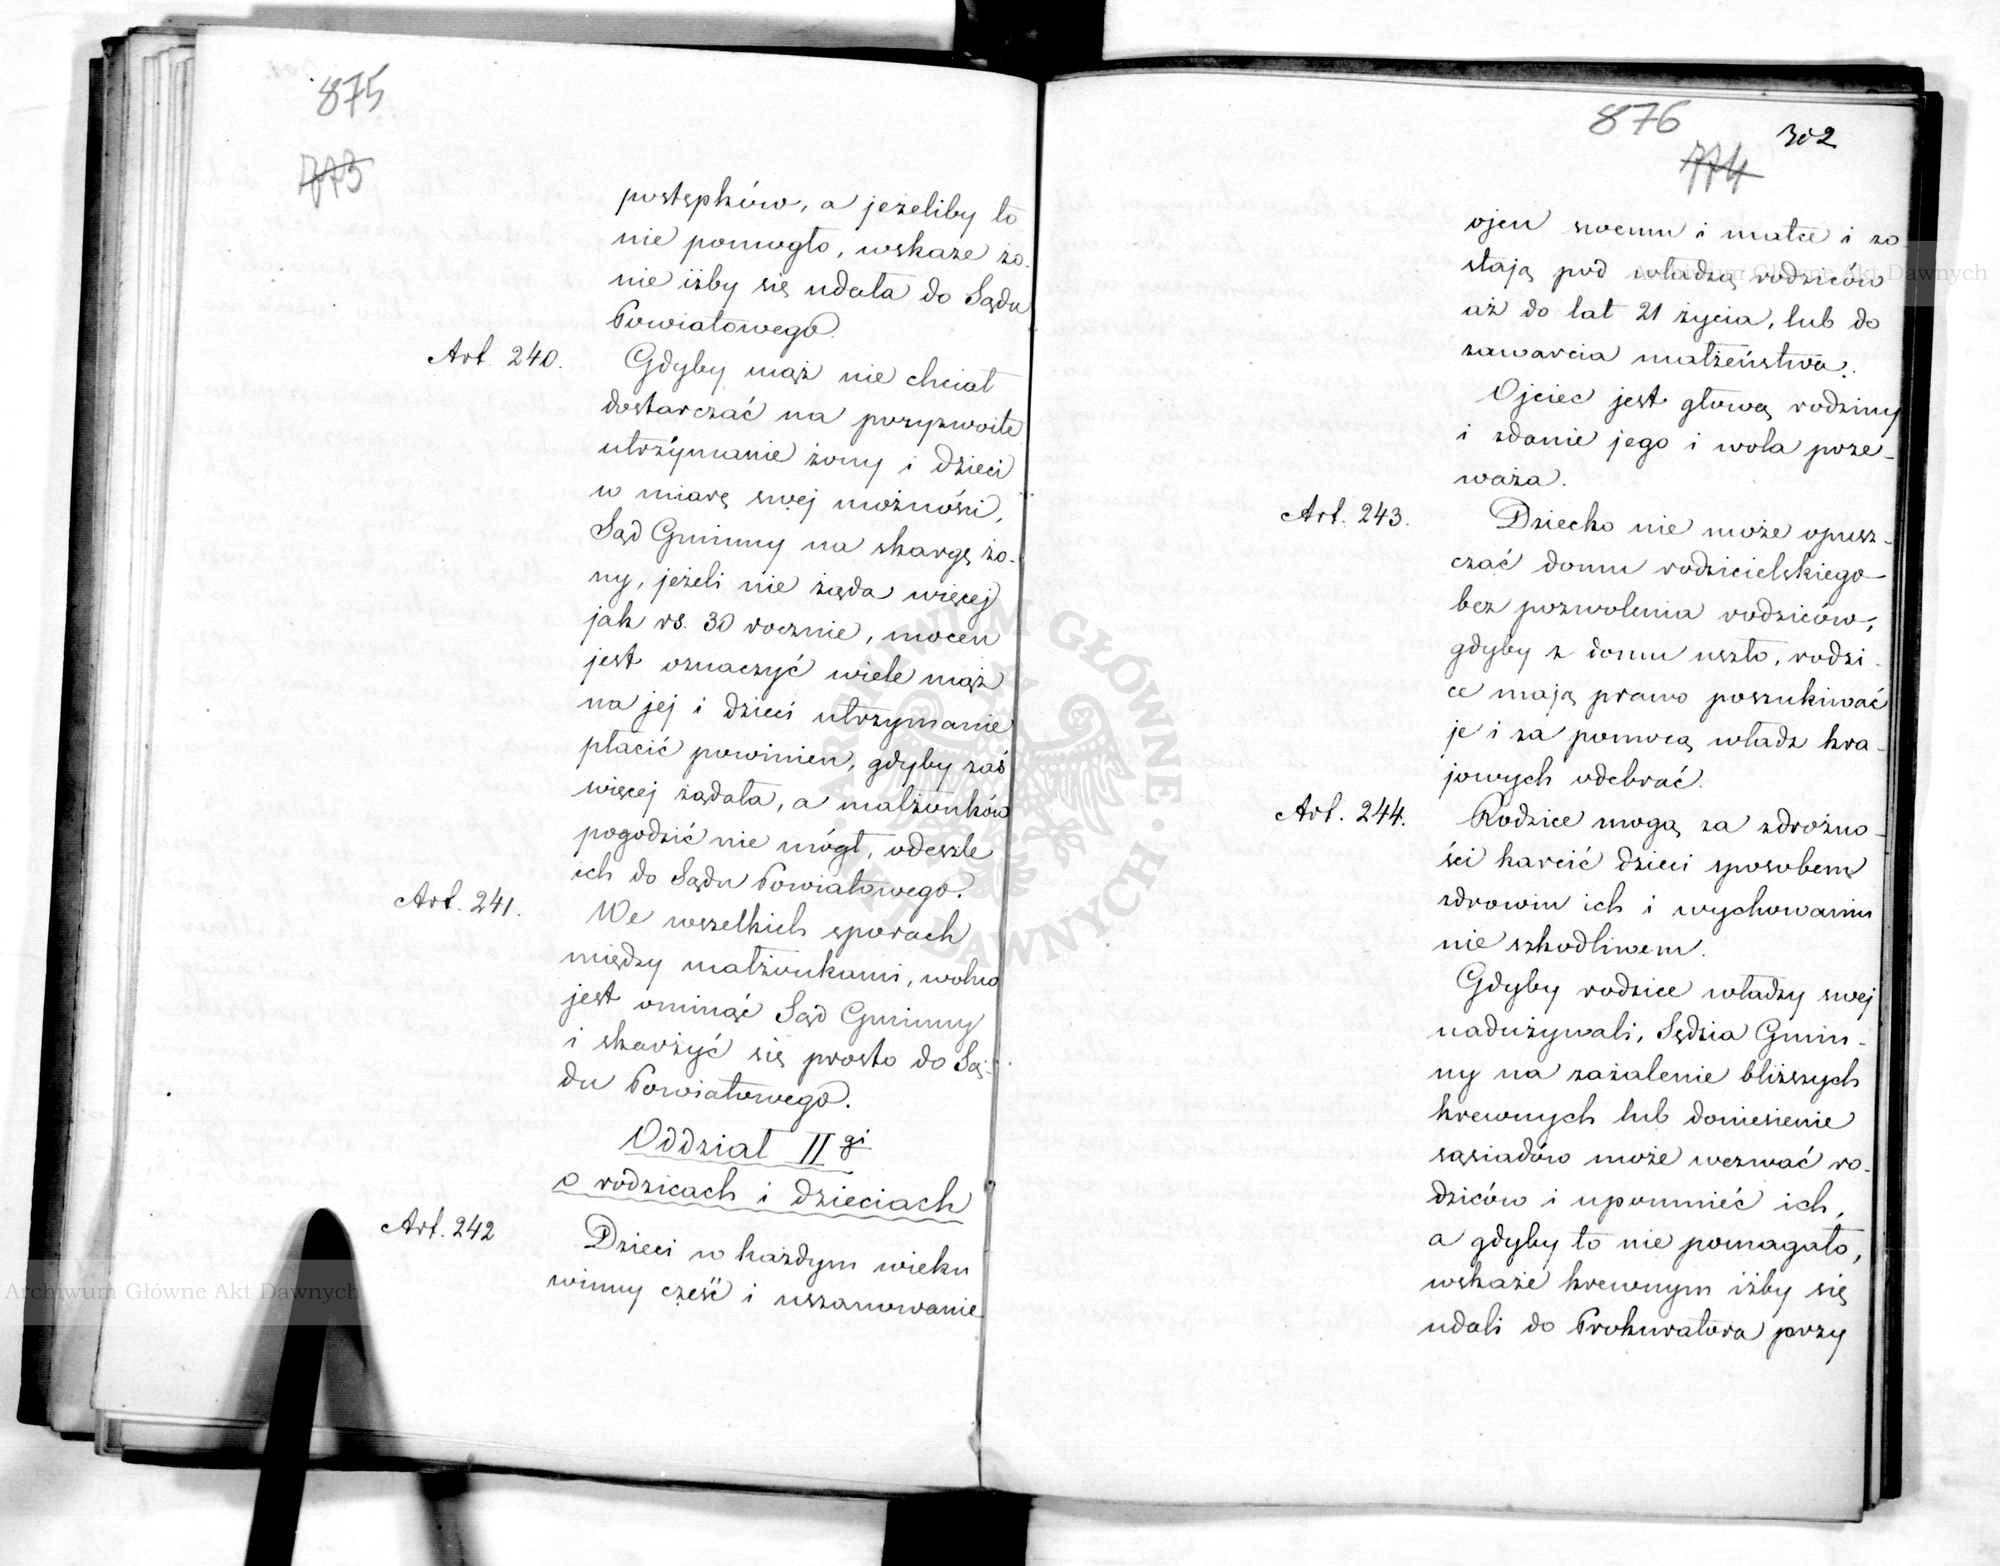 875
773
postępków, a jeżeliby to
nie pomogło, wskaże żo-
nie iżby się udała do Sądu
Powiatowego.
Art. 240. Gdyby mąż nie chciał
dostarczać na przyzwoite
utrzymanie żony i dzieci
w miarę swej możności,
Sąd Gminny na skargę żo-
ny, jeżeli nie żąda więcej
jak rs. 30 rocznie, mocen
jest oznaczyć wiele mąż
na jej i dzieci utrzymanie
płacić powinien, gdyby zaś
więcej żądała, a małżonków
pogodzić nie mógł, odeszle
ich do Sądu Powiatowego.
Art. 241. We wszelkich sporach
między małżonkami, wolno
jest ominąć Sąd Gminny
i skarżyć się prosto do Są-
du Powiatowego.
Oddział II gi
o rodzicach i dzieciach
Art. 242 Dzieci w każdym wieku
winny cześć i uszanowanie
876
302
774
ojcu swemu i matce i zo-
stają pod władzą rodziców
aż do lat 21 życia, lub do
zawarcia małżeństwa.
Ojciec jest głową rodziny
i zdanie jego i wola prze-
waża.
Art. 243. Dziecko nie może opusz-
czać domu rodzicielskiego
bez pozwolenia rodziców,
gdyby z domu uszło, rodzi-
ce mają prawo poszukiwać
je i za pomocą władz kra-
jowych odebrać.
Art. 244. Rodzice mogą za zdrożno-
ści karcić dzieci sposobem
zdrowiu ich i wychowaniu
nie szkodliwem.
Gdyby rodzice władzy swej
nadużywali, Sędzia Gmin-
ny na zażalenie bliższych
krewnych lub doniesienie
sąsiadów może wezwać ro-
dziców i upomnieć ich,
a gdyby to nie pomagało,
wskaże krewnym iżby się
udali do Prokuratora przy
Archiwum Główne Akt Dawnych
Archiwum Główne Akt Dawnych
ARCHIWUM GŁÓWNE AKT DAWNYCH